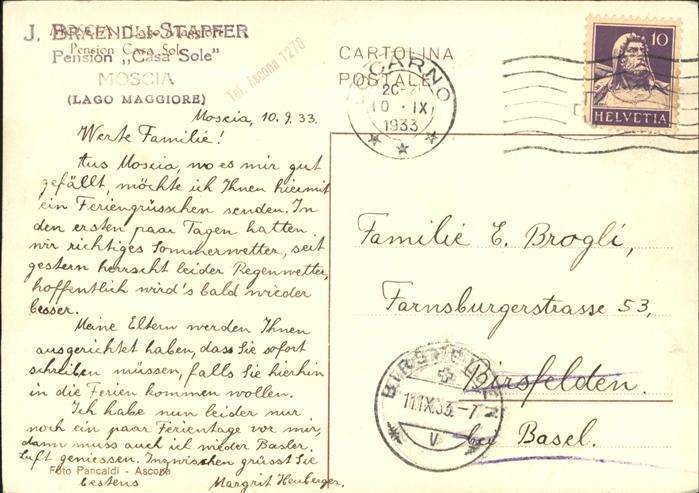 J. BRAENDLI-STAPFER
Pension Casa Sole
Pension „Casa Sole"
MOSCIA
(LAGO MAGGIORE)
Tel. Ascona 1270
CARTOLINA
POSTALE
LOCARNO
10. IX.
1933
10
HELVETIA
Moscia, 10.9.33.
Werte Familie!
Aus Moscia, wo es mir gut
gefällt, möchte ich Ihnen hiermit
ein Feriengrüsschen senden. In
den ersten paar Tagen hatten
wir richtiges Sommerwetter, seit
gestern herrscht leider Regenwetter,
hoffentlich wird's bald wieder
besser.
Meine Eltern werden Ihnen
ausgerichtet haben, dass Sie sofort
schreiben müssen, falls Sie hierhin
in die Ferien kommen wollen.
Ich habe nun leider nur
noch ein paar Ferientage vor mir,
dann muss auch ich wieder Basler
Luft geniessen. Inzwischen grüsst Sie
bestens Margrit Heuberger.
Foto Pancaldi - Ascona
Familie E. Brogli,
Farnsburgerstrasse 53,
Birsfelden.
bei Basel.
BIRSFELDEN
11.IX.33.-7
V